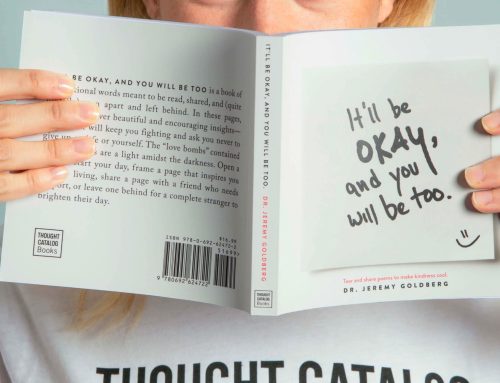 BE OKAY, AND YOU WILL BE TOO is a book of
tional words meant to be read, shared, and (quite
apart and left behind. In these pages,
ver beautiful and encouraging insights—
will keep you fighting and ask you never to
give up or yourself. The “love bombs” contained
are a light amidst the darkness. Open a
art your day, frame a page that inspires you
living, share a page with a friend who needs
ort, or leave one behind for a complete stranger to
brighten their day.
THOUGHT
CATALOG
Books
$16.99
ISBN 978-0-692-62472-2
51699>
9 780692 624722
IT'LL BE OKAY, AND YOU WILL BE TOO. DR. JEREMY GOLDBERG
THOUGHT
CATALOG
Books
It'll be
OKAY,
and you
will be too.
Tear and share poems to make kindness cool.
DR. JEREMY GOLDBERG
THOUGHT CATALOG